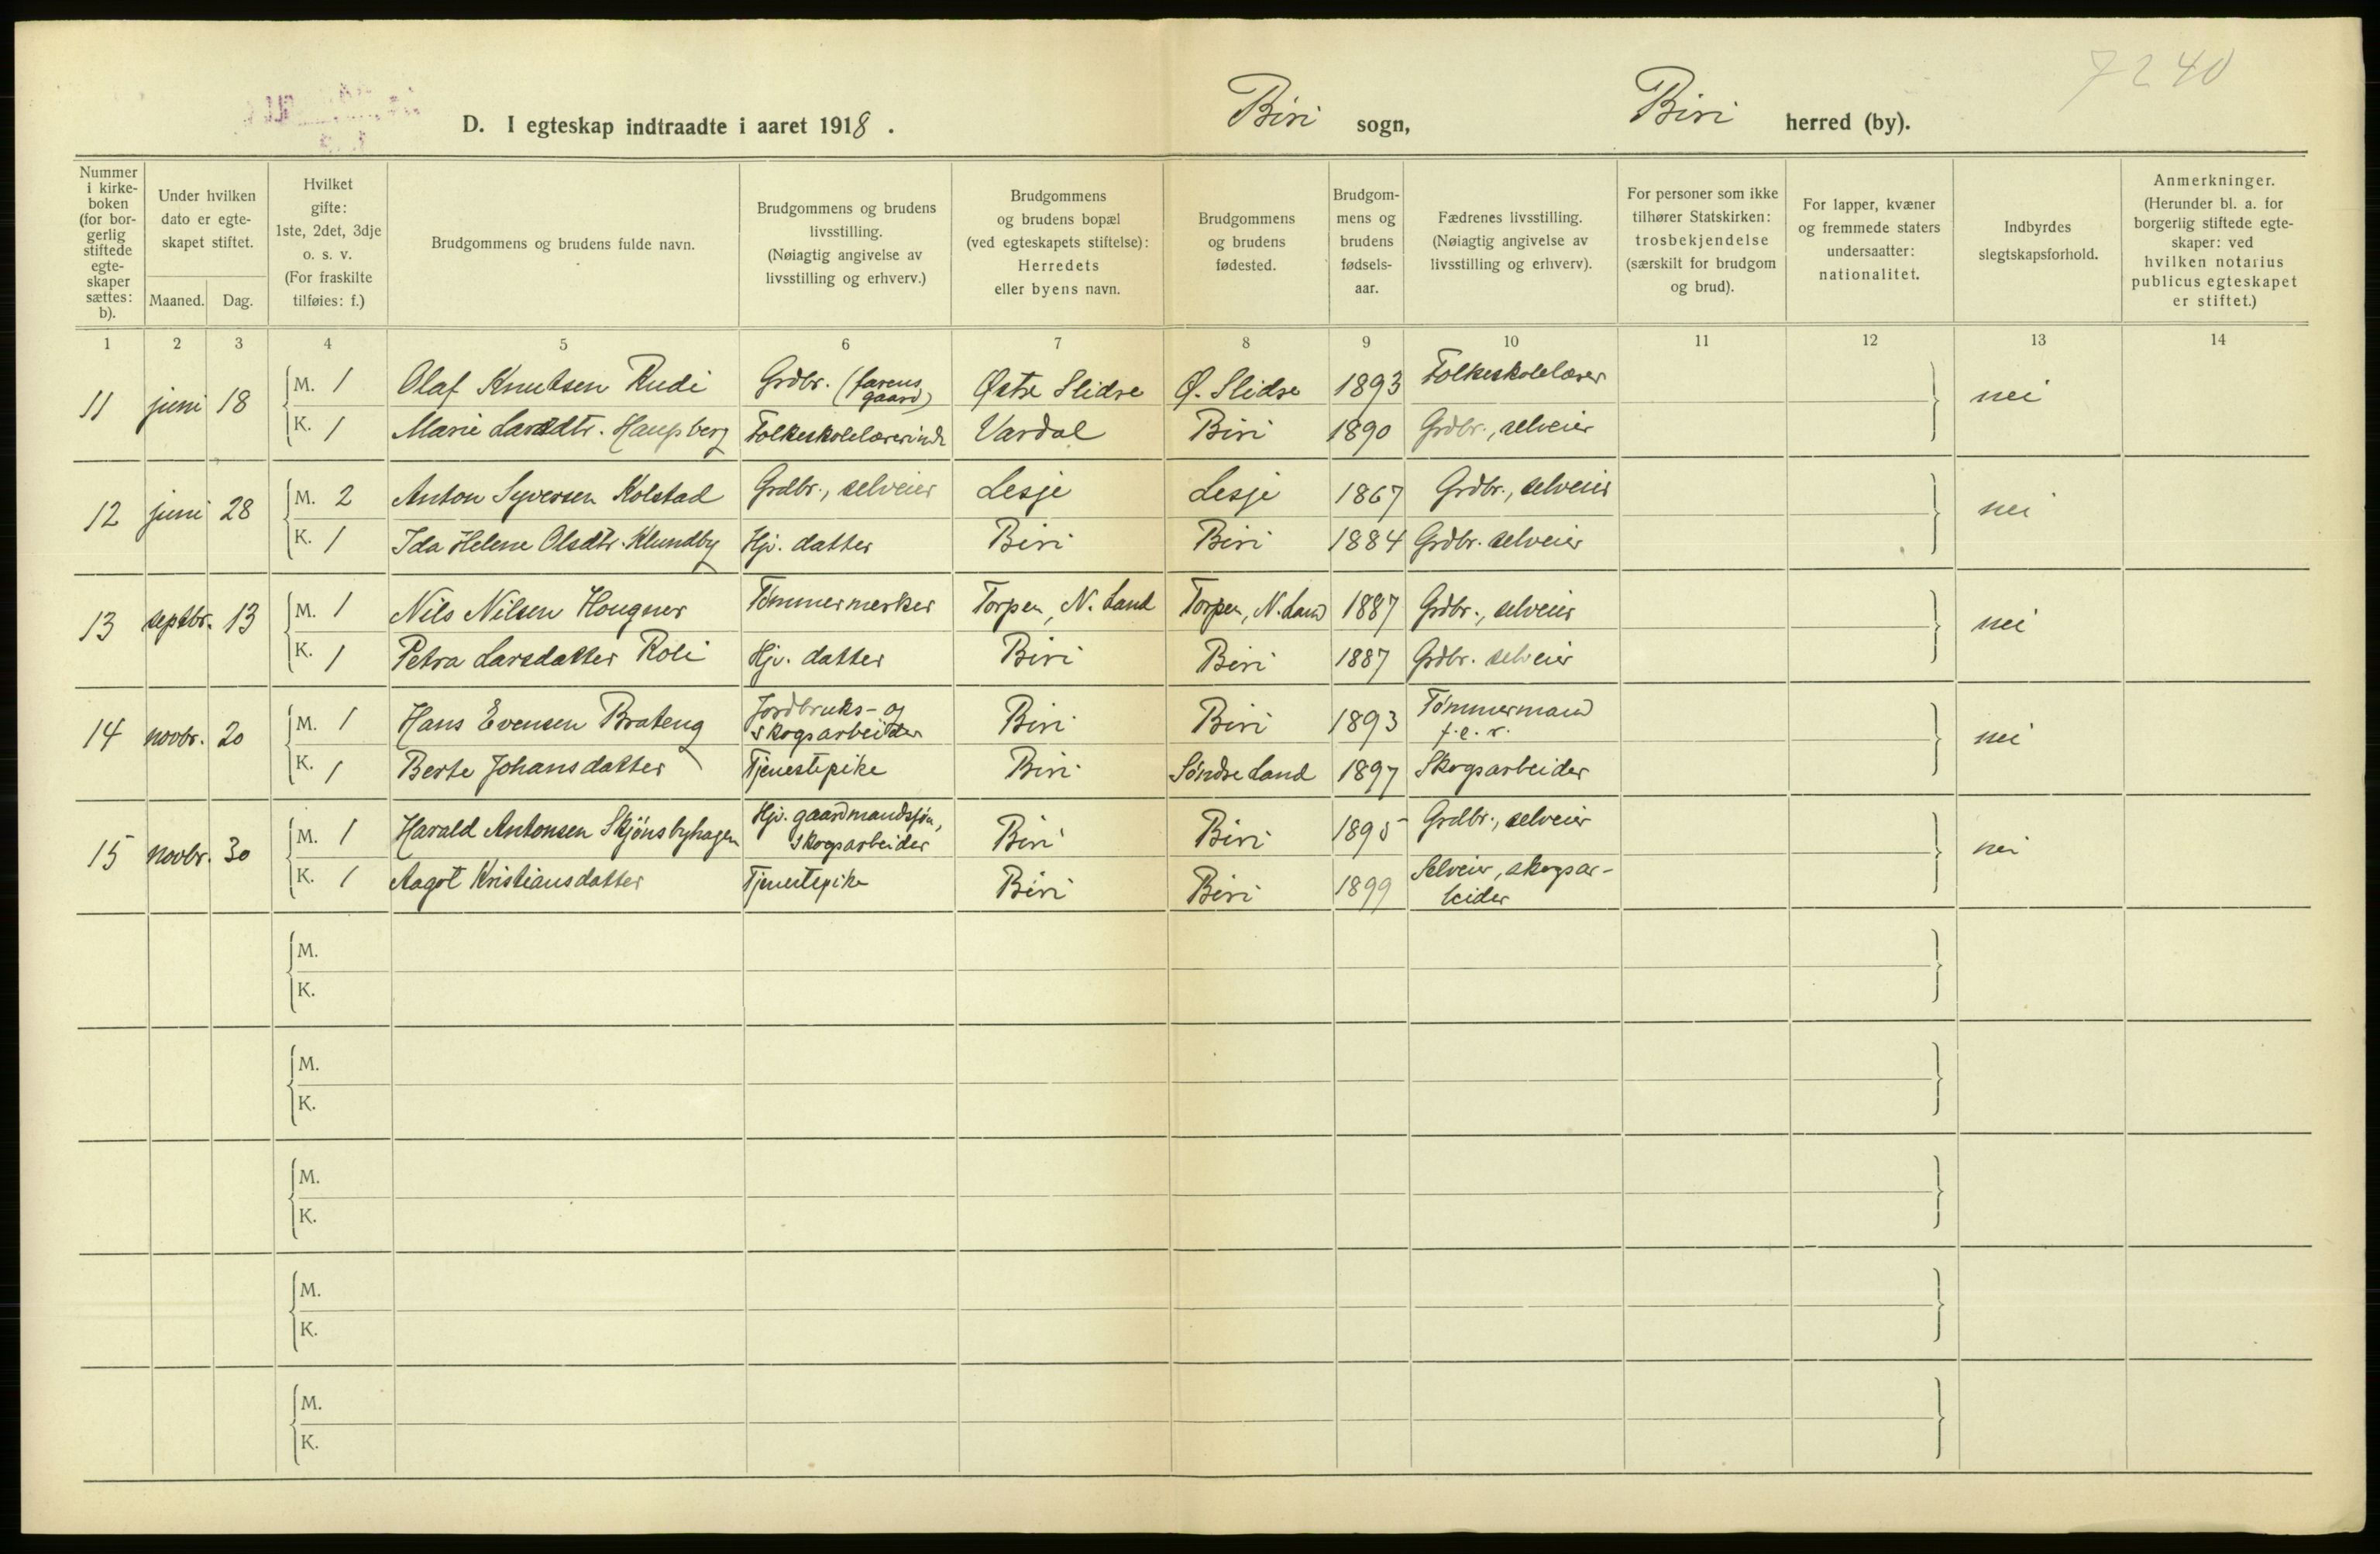 7240
D. I egteskap indtraadte i aaret 1918. Biri sogn, Biri herred (by).
Nummer i kirke-boken (for bor-gerlig stiftede egte-skaper sættes: b).
Under hvilken dato er egte-skapet stiftet.
Maaned. Dag.
Hvilket gifte: 1ste, 2det, 3dje o. s. v. (For fraskilte tilføies: f.)
Brudgommens og brudens fulde navn.
Brudgommens og brudens livsstilling. (Nøiagtig angivelse av livsstilling og erhverv.)
Brudgommens og brudens bopæl (ved egteskapets stiftelse): Herredets eller byens navn.
Brudgommens og brudens fødested.
Brudgom-mens og brudens fødsels-aar.
Fædrenes livsstilling. (Nøiagtig angivelse av livsstilling og erhverv).
For personer som ikke tilhører Statskirken: trosbekjendelse (særskilt for brudgom og brud).
For lapper, kvæner og fremmede staters undersaatter: nationalitet.
Indbyrdes slegtskapsforhold.
Anmerkninger. (Herunder bl. a. for borgerlig stiftede egte-skaper: ved hvilken notarius publicus egteskapet er stiftet.)
1 2 3 4 5 6 7 8 9 10 11 12 13 14
11 juni 18 M. 1 Olaf Knutsen Rudi Grdbr. (farens gaard) Østre Slidre Ø. Slidre 1893 Folkeskolelærer nei
K. 1 Marie Larsdtr. Haugsberg Folkeskolelærerinde Vardal Biri 1890 Grdbr., selveier
12 juni 28 M. 2 Anton Syversen Kolstad Grdbr., selveier Lesje Lesje 1867 Grdbr., selveier nei
K. 1 Ida Helene Olsdtr. Klundby Hjv. datter Biri Biri 1884 Grdbr. selveier
13 septbr. 13 M. 1 Nils Nilsen Hougner Tømmermerker Torpen, N. Land Torpen, N. Land 1887 Grdbr., selveier nei
K. 1 Petra Larsdatter Roli Hjv. datter Biri Biri 1887 Grdbr. selveier
14 novbr. 20 M. 1 Hans Evensen Brateng Jordbruks- og skogsarbeider Biri Biri 1893 Tømmermand f. e. r. nei
K. 1 Berte Johansdatter Tjenestepike Biri Søndre Land 1897 Skogsarbeider
15 novbr. 30 M. 1 Harald Antonsen Skjønsbyhagen Hjv. gaardmandssøn, skogsarbeider Biri Biri 1895 Grdbr., selveier nei
K. 1 Aagot Kristiansdatter Tjenestepike Biri Biri 1899 Selveier, skogsar-beider
M.
K.
M.
K.
M.
K.
M.
K.
M.
K.